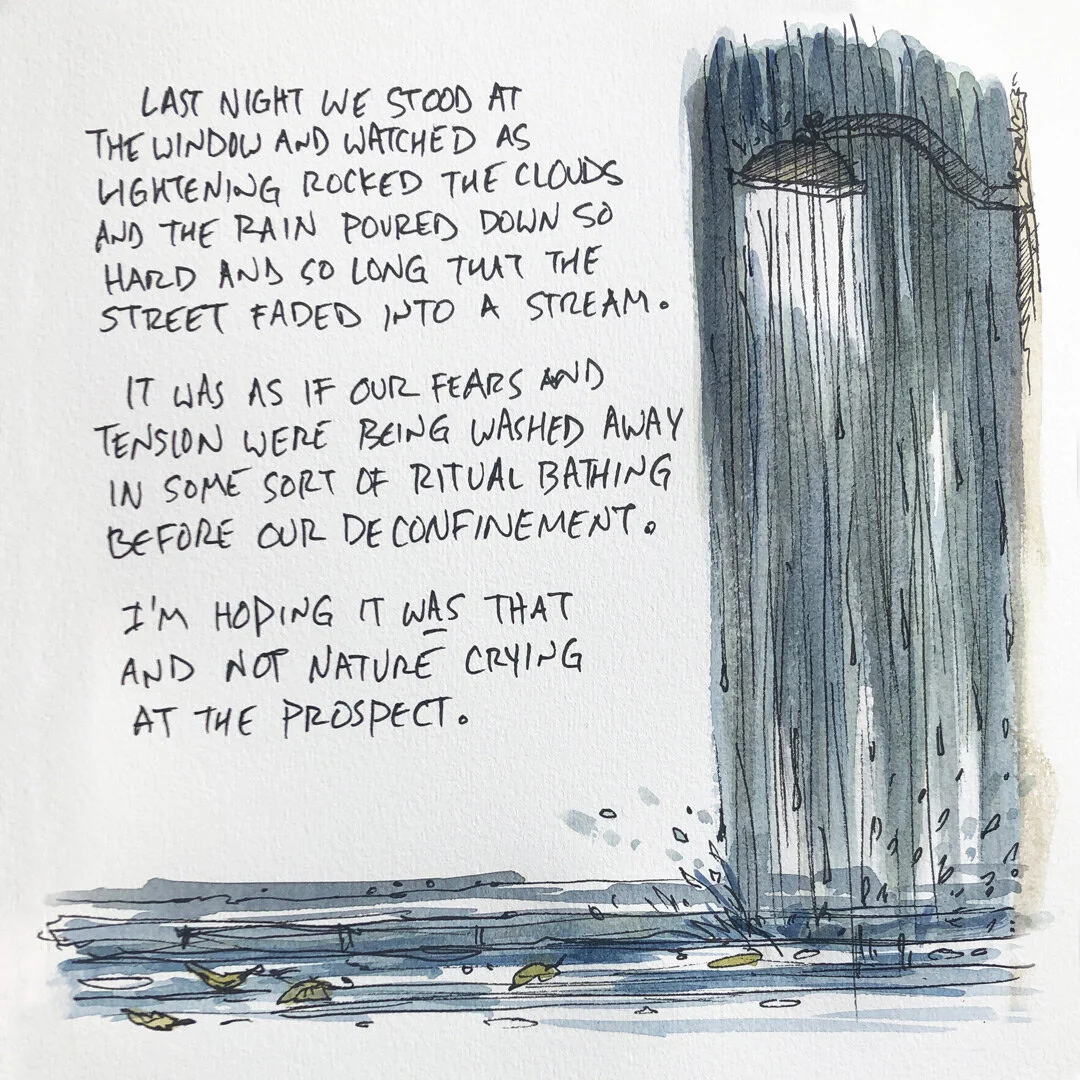 LAST NIGHT WE STOOD AT
THE WINDOW AND WATCHED AS
LIGHTENING ROCKED THE CLOUDS
AND THE RAIN POURED DOWN SO
HARD AND SO LONG THAT THE
STREET FADED INTO A STREAM.
IT WAS AS IF OUR FEARS AND
TENSION WERE BEING WASHED AWAY
IN SOME SORT OF RITUAL BATHING
BEFORE OUR DECONFINEMENT.
I'M HOPING IT WAS THAT
AND NOT NATURE CRYING
AT THE PROSPECT.